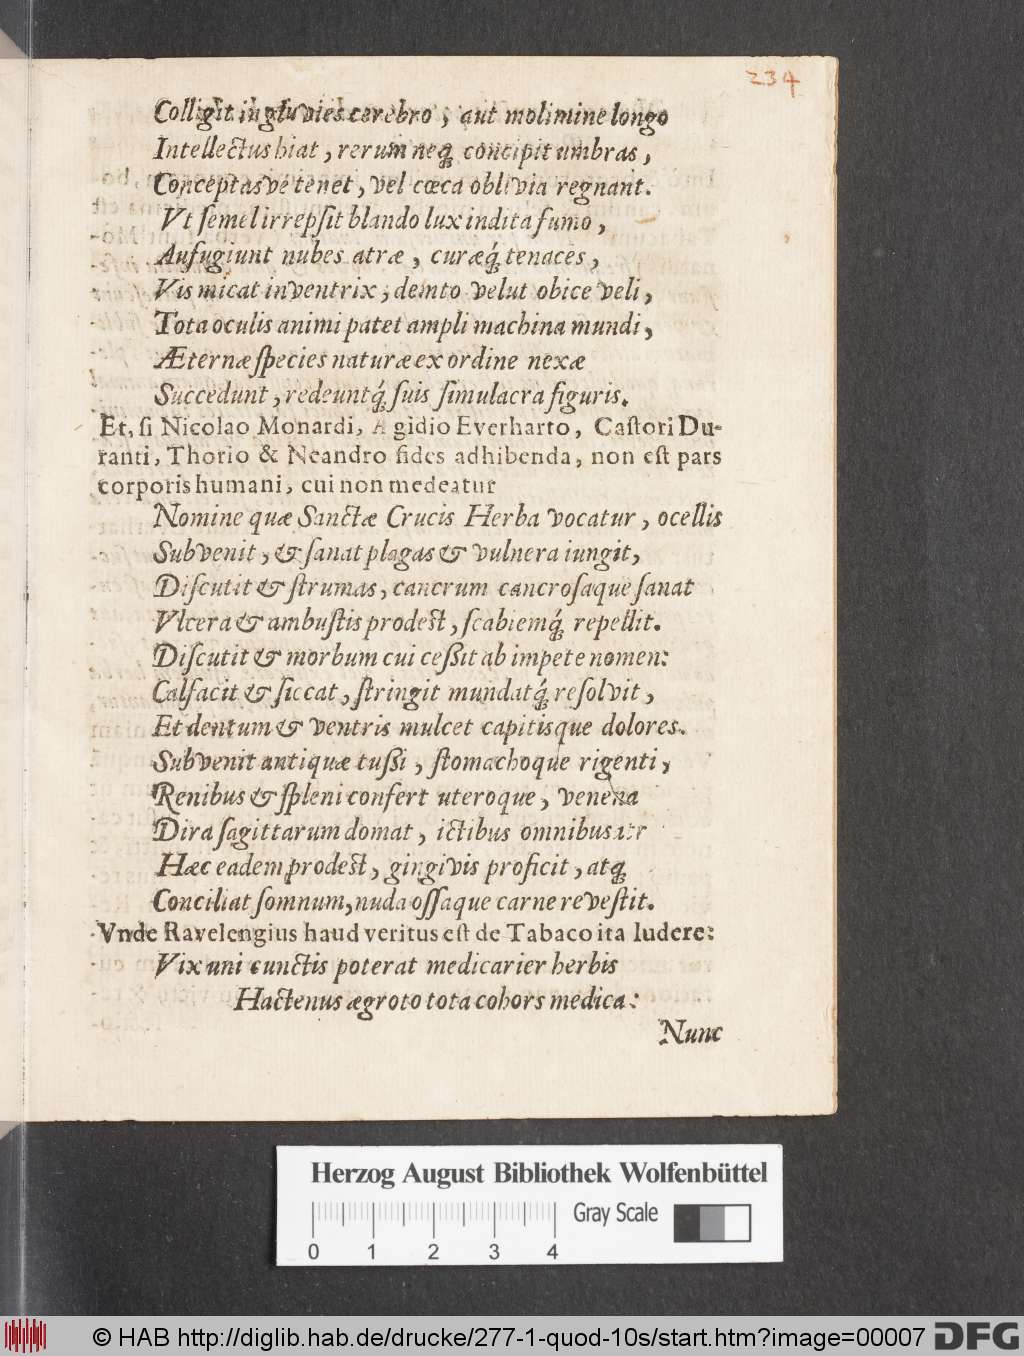 234
Colligit ingluvies cerebro, aut molimine longo
Intellectus hiat, rerum neq́; concipit umbras,
Conceptasve tenet, vel cœca oblivia regnant.
Vt ſemel irrepſit blando lux indita fumo,
Aufugiunt nubes atræ, curæq́; tenaces,
Vis micat inventrix, demto velut obice veli,
Tota oculis animi patet ampli machina mundi,
Æternæ ſpecies naturæ ex ordine nexæ
Succedunt, redeuntq́; ſuis ſimulacra figuris.
Et, ſi Nicolao Monardi, Ægidio Everharto, Caſtori Du-
ranti, Thorio & Neandro fides adhibenda, non eſt pars
corporis humani, cui non medeatur
Nomine quæ Sanctæ Crucis Herba vocatur, ocellis
Subvenit, & ſanat plagas & vulnera iungit,
Diſcutit & ſtrumas, cancrum cancroſaque ſanat
Vlcera & ambuſtis prodeſt, ſcabiemq́; repellit.
Diſcutit & morbum cui ceſſit ab impete nomen:
Calfacit & ſiccat, ſtringit mundatq́; reſolvit,
Et dentum & ventris mulcet capitisque dolores.
Subvenit antiquæ tuſſi, ſtomachoque rigenti,
Renibus & ſpleni confert uteroque, venena
Dira ſagittarum domat, ictibus omnibus atr
Hæc eadem prodeſt, gingivis proficit, atq;
Conciliat ſomnum, nuda oſſaque carne reveſtit.
Vnde Ravelengius haud veritus eſt de Tabaco ita ludere:
Vix uni cunctis poterat medicarier herbis
Hactenus ægroto tota cohors medica:
Nunc
Herzog August Bibliothek Wolfenbüttel
Gray Scale
0 1 2 3 4
© HAB http://diglib.hab.de/drucke/277-1-quod-10s/start.htm?image=00007 DFG